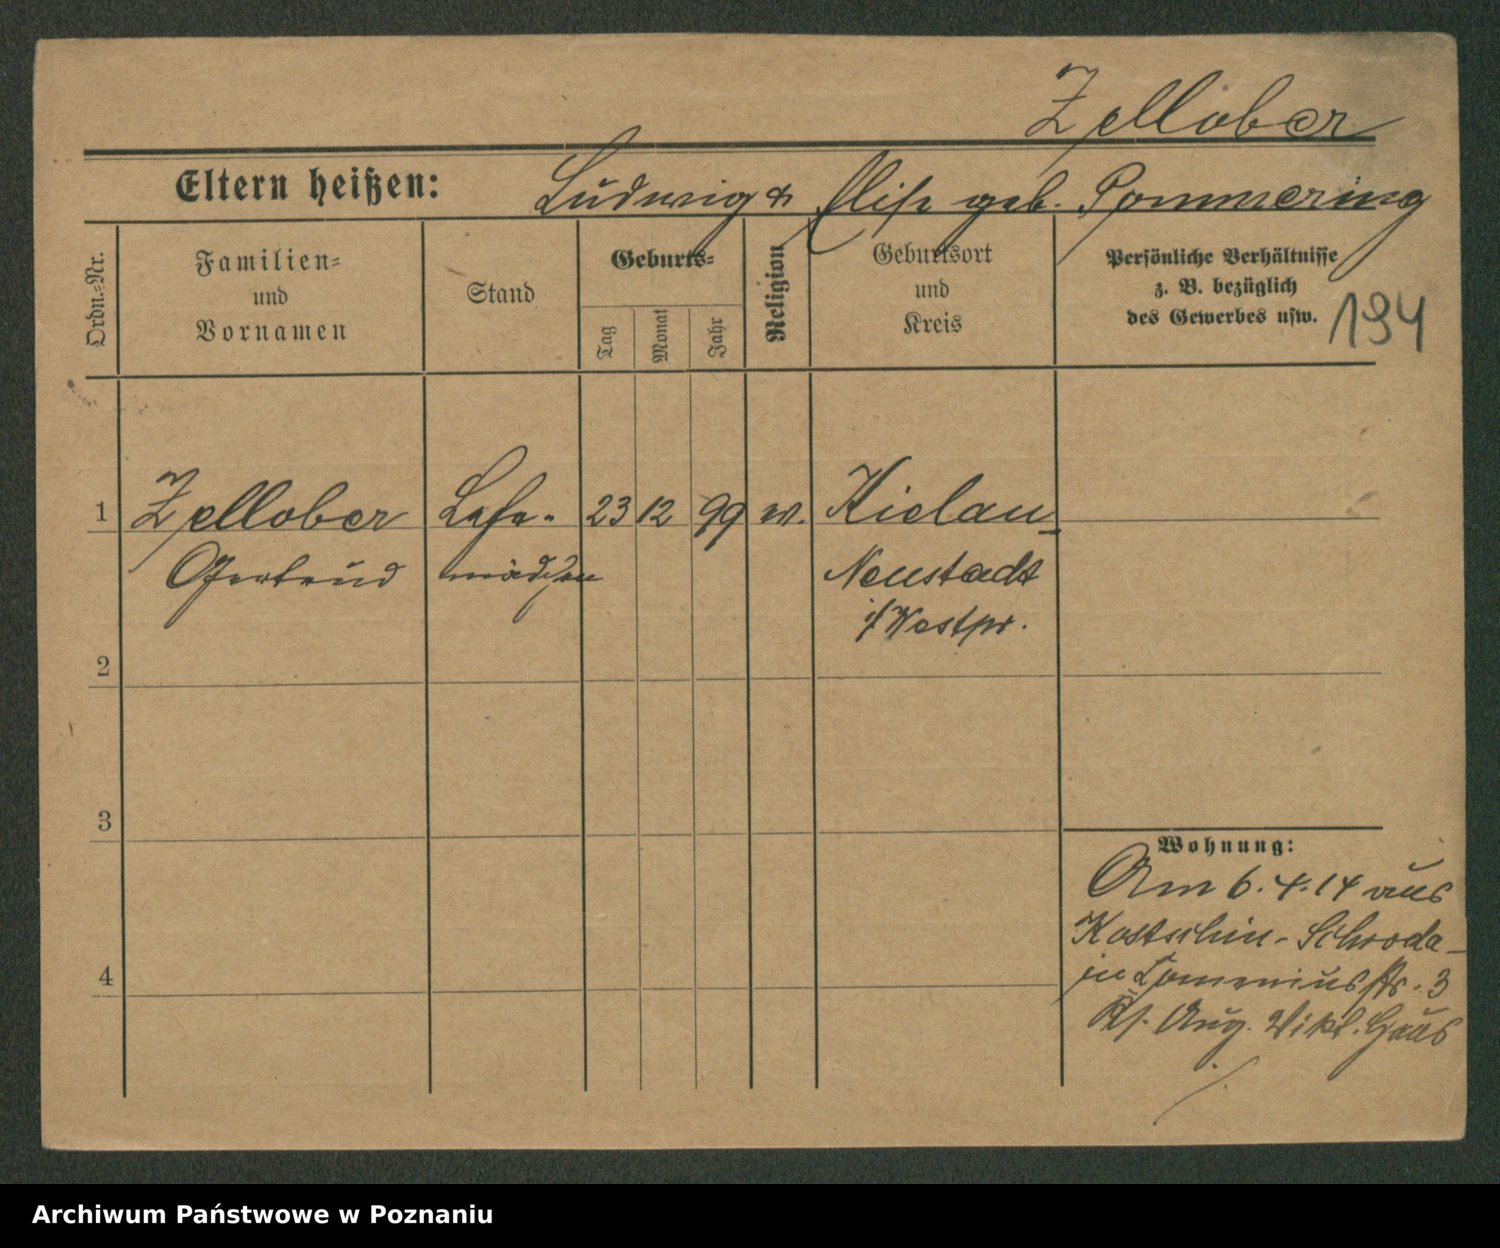 Zellober
Eltern heißen: Ludwig & Elise geb. Pommering
Ordn.=Nr.
Familien=
und
Vornamen
Stand
Geburts=
Tag
Monat
Jahr
Religion
Geburtsort
und
Kreis
Persönliche Verhältnisse
z. B. bezüglich
des Gewerbes usw.
194
1 Zellober 23 12 99 w. Kielau
Gertrud mädchen Neustadt
i/Westpr.
2
3
4
Wohnung:
Am 6.4.14 aus
Kostschin - Schroda
in Comeniusstr. 3
Aug. Vikt. Haus
Archiwum Państwowe w Poznaniu